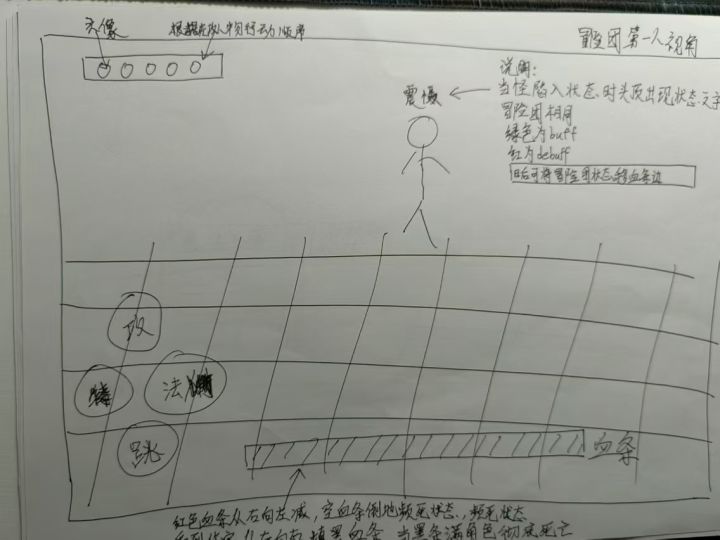 头像
根据敌人物行动顺序
冒险团第一人视角
说明:
当怪陷入状态时头顶出现状态文字
冒险团相同
绿色为buff
红为debuff
日后可将冒险团状态移血条边
震慑
攻
法
跳
血条
红色血条从右向左减,空血条倒地频死状态,频死状态
从左向右填黑血条,当黑条满角色彻底死亡